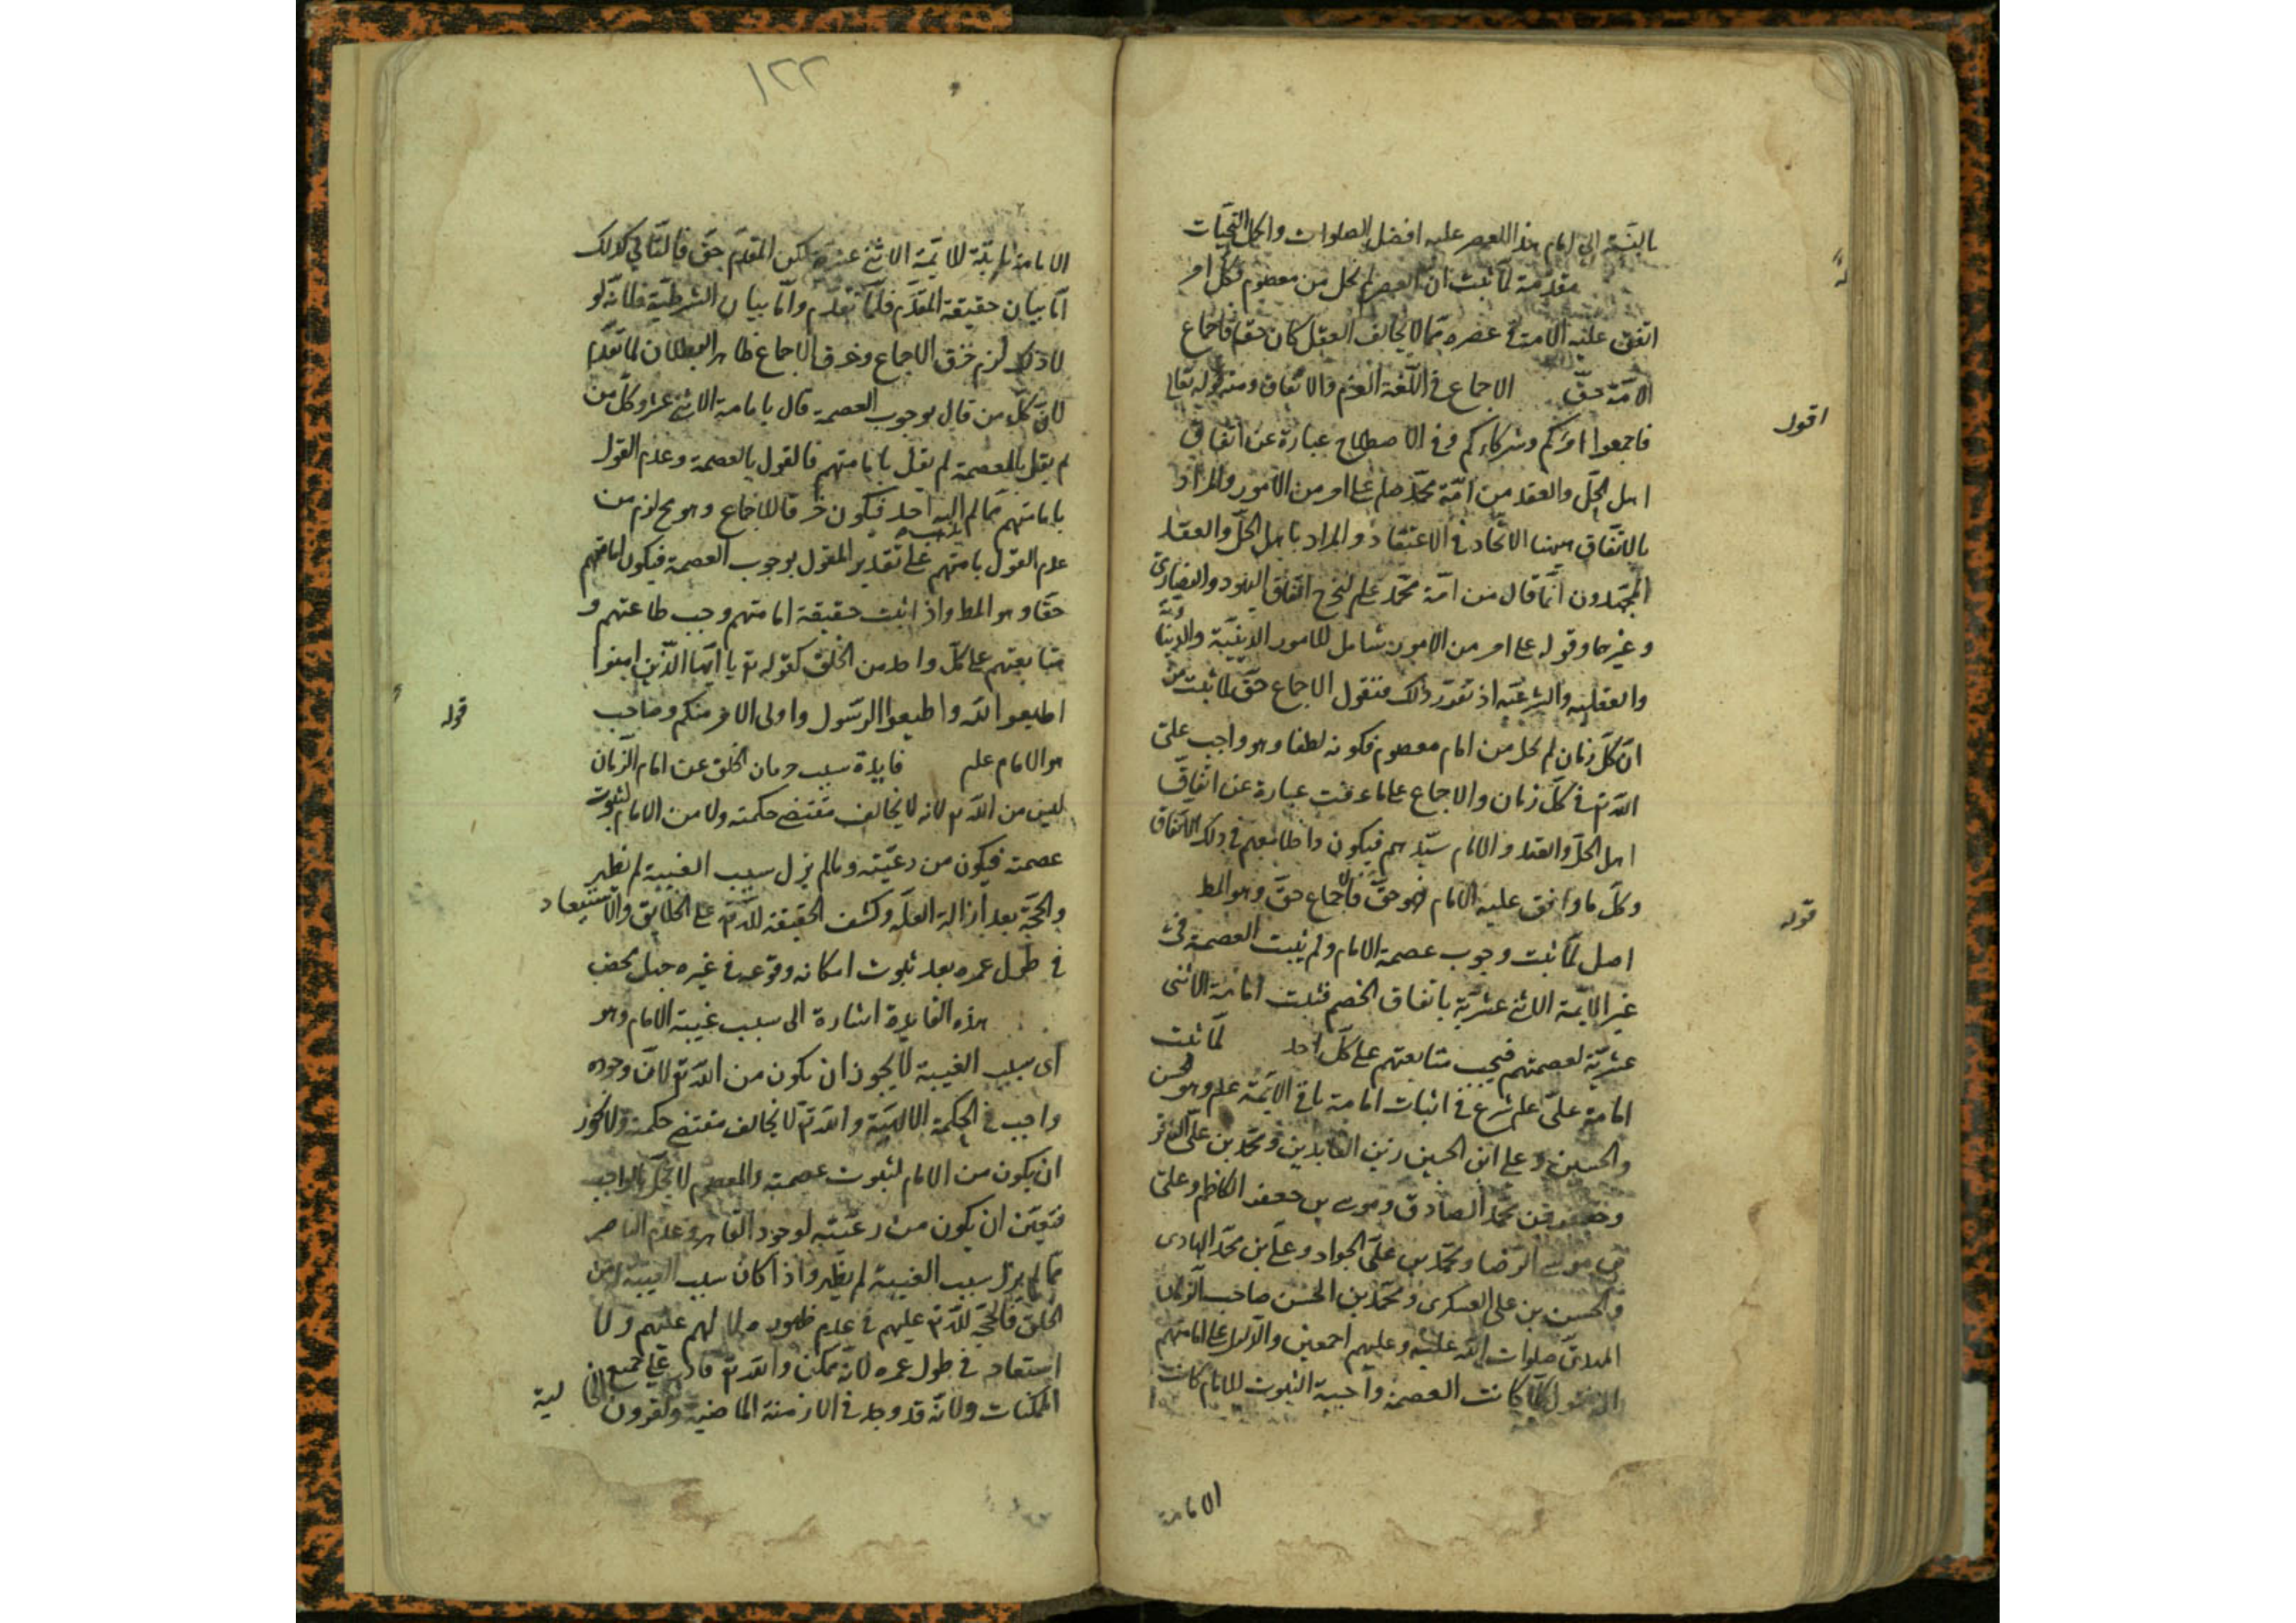 بالنسبة الى امام هذا العصر عليه افضل الصلوات واكمل التحيات
مقدمة لما ثبت ان العصر لم يخل من معصوم فكل امر
اتفق عليه الامة فى عصره مما لا يخالف العقل كان حقا فاجماع
الامة حق الاجماع فى اللغة العزم والاتفاق ومنه قوله تعالى
اقول
فاجمعوا امركم وشركاءكم وفى الاصطلاح عبارة عن اتفاق
اهل الحل والعقد من امة محمد صلم على امر من الامور والمراد
بالاتفاق ههنا الاتحاد فى الاعتقاد والمراد باهل الحل والعقد
المجتهدون انما قال من امة محمد علم ليخرج اتفاق اليهود والنصارى
وغيرهما وقوله على امر من الامور شامل للامور الدينية والدنياوية
والعقلية والشرعية اذ تقرر ذلك فنقول الاجماع حق لما ثبت من
ان كل زمان لم يخل من امام معصوم فكونه لطفا وهو واجب على
الله تع فى كل زمان والاجماع على ما عرفت عبارة عن اتفاق
اهل الحل والعقد والامام سيدهم فيكون داخلا معهم فى ذلك الاتفاق
وكل ما وافق عليه الامام فهو حق فالاجماع حق وهو المط
قوله
اصل لما ثبت وجوب عصمة الامام ولم يثبت العصمة فى
غير الايمة الاثنى عشرية باتفاق الخصم فثبت امامة الاثنى
عشرية لعصمتهم فيجب متابعتهم على كل احد لما ثبت
امامة على علم شرع فى اثبات امامة باقى الايمة علم وهو الحسن
والحسين وعلى ابن الحسين زين العابدين ومحمد بن على الباقر
وجعفر بن محمد الصادق وموسى بن جعفر الكاظم وعلى
بن موسى الرضا ومحمد بن على الجواد وعلى بن محمد الهادى
والحسن بن على العسكرى ومحمد بن الحسن صاحب الزمان
المهدى صلوات الله عليه وعليهم اجمعين والدليل على امامتهم
كلما كانت العصمة واجبة الثبوت للامام كانت
الامامة
١٢٢
الامامة ثابتة للايمة الاثنى عشرة لكن المقدم حق فالتالى كذلك
اما بيان حقيقة المقدم فلما تقدم واما بيان الشرطية فلانه لو
لا ذلك لزم خرق الاجماع وخرق الاجماع ظاهر البطلان لما تقدم
لان كل من قال بوجوب العصمة قال بامامة الاثنى عشر وكل من
لم يقل بالعصمة لم يقل بامامتهم فالقول بالعصمة وعدم القول
بامامتهم مما لم اليه احد فيكون خرقا للاجماع وهو مح لزم من
عدم القول بامامتهم على تقدير القول بوجوب العصمة فيكون امامتهم
حقا وهو المط واذا ثبت حقيقة امامتهم وجب طاعتهم و
متابعتهم على كل واحد من الخلق كقوله تع يا ايها الذين امنوا
اطيعوا الله واطيعوا الرسول واولى الامر منكم وصاحب
قوله
هو الامام علم فايدة سبب حرمان الخلق عن امام الزمان
ليس من الله تع لانه لا يخالف مقتضى حكمته ولا من الامام لثبوت
عصمته فيكون من رعيته وما لم يزل سبب الغيبة لم يظهر
والحجة بعد ازالة العلة وكشف الحقيقة لله تع على الخلايق والاستبعاد
فى طول عمره بعد ثبوت امكانه ووقوعه فى غيره جهل محض
هذه الفايدة اشارة الى سبب غيبة الامام وهو
اى سبب الغيبة لا يجوز ان يكون من الله تع لان وجوده
واجب فى الحكمة الالهية والله تع لا يخالف مقتضى حكمته ولا يجوز
ان يكون من الامام لثبوت عصمته والمعصوم لا يخل بالواجب
فتعين ان يكون من رعيته لوجود القاهر وعدم الناصر
فما لم يزل سبب الغيبة لم يظهر واذا كان سبب الغيبة من
الخلق فالحجة لله تع عليهم فى عدم ظهوره لا لهم عليهم ولا
استبعاد فى طول عمره لانه ممكن والله تع قادر على جميع
الممكنات ولانه قد وجد فى الازمنة الماضية والقرون الخالية